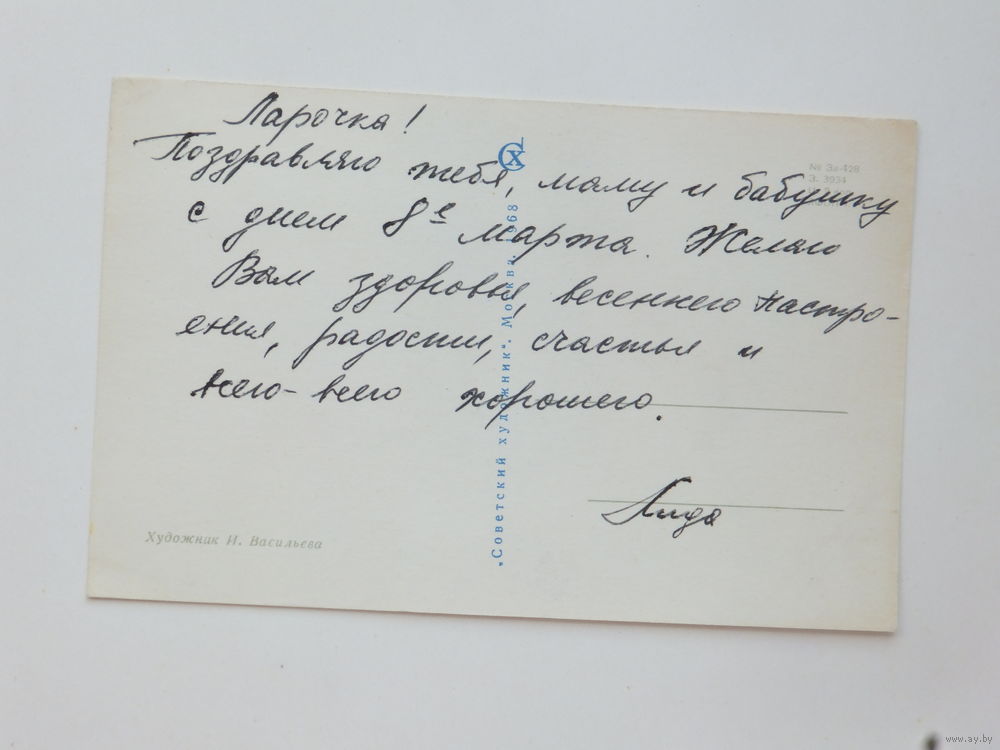 Ларочка!
Поздравляю тебя, маму и бабушку
с днем 8е марта. Желаю
Вам здоровья, весеннего настро-
ения, радости, счастья и
всего-всего хорошего.
Лида
Художник И. Васильева
„Советский художник". Москва. 1968
№ 3л-428
З. 3934
www.ay.by